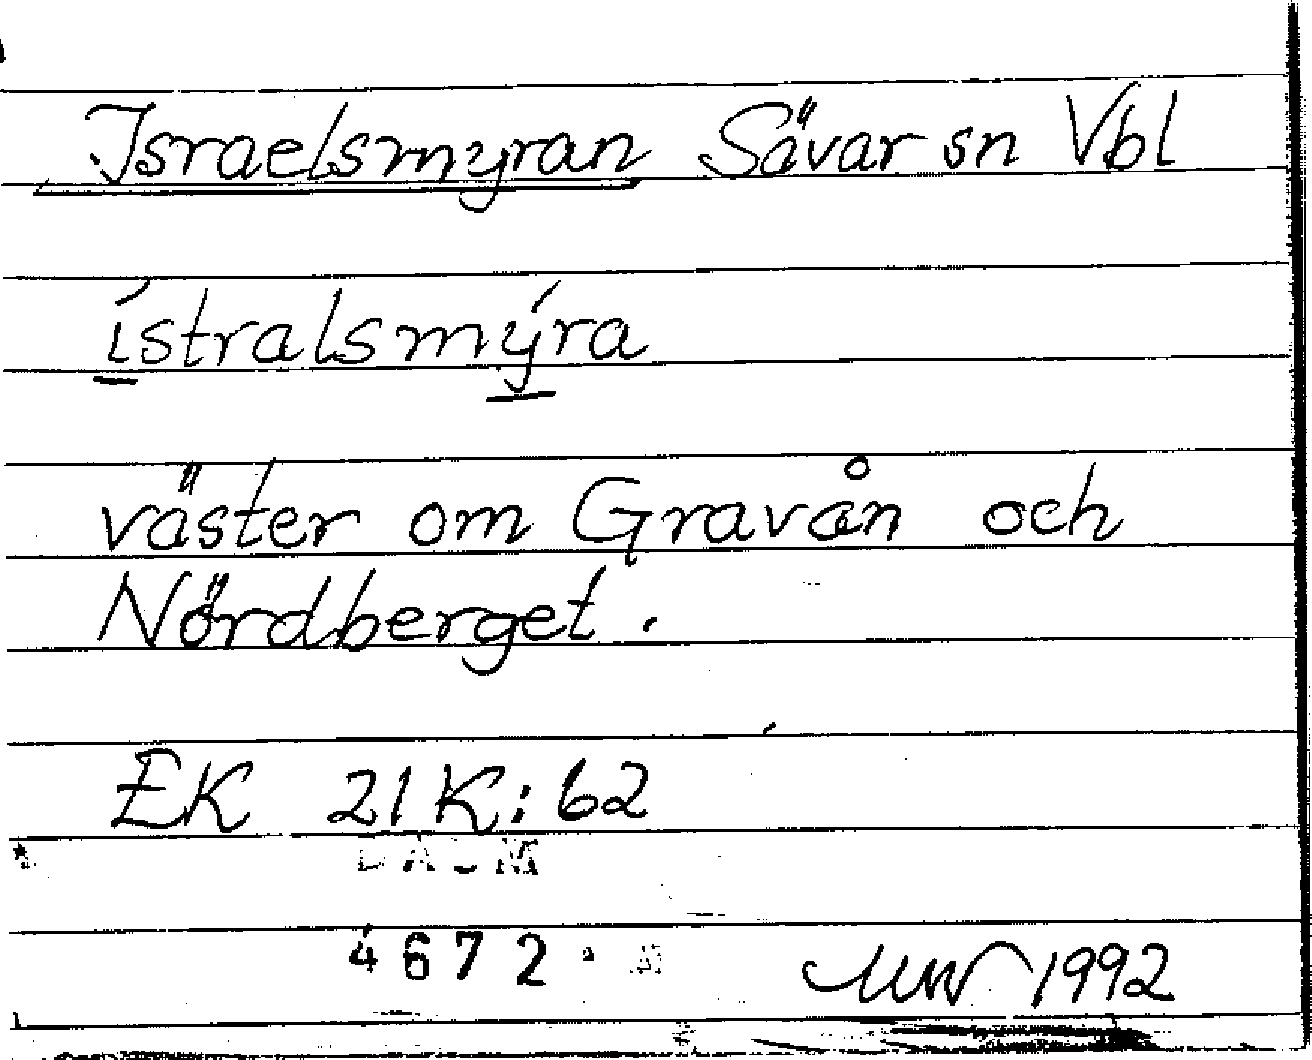 Israelsmyran Sävar sn Vbl
ístralsmýra
väster om Gravån och
Nördberget.
EK 21K:62
DAUM
4672
1992